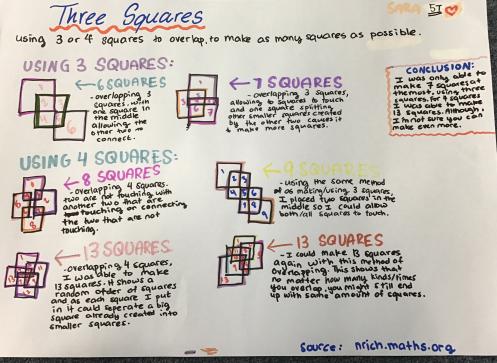 Three Squares
SARA 5I
using 3 or 4 squares to overlap, to make as many squares as possible.
USING 3 SQUARES:
6 SQUARES
- overlapping 3
squares, with
one square in
the middle
allowing the
other two to
connect.
7 SQUARES
- overlapping 3 squares,
allowing to squares to touch
and one square splitting
other smaller squares created
by the other two causes it
to make more squares.
CONCLUSION:
I was only able to
make 7 squares at
the most, using three
squares. for 4 squares
I was able to make
13 squares. Although,
I'm not sure you can
make even more.
USING 4 SQUARES:
8 SQUARES
- overlapping 4 squares.
two are not touching with
another two that are
touching or connecting
the two that are not
touching.
9 SQUARES
- using the same method
as making/using 3 squares
I placed two squares in the
middle so I could allow
both/all squares to touch.
13 SQUARES
- overlapping 4 squares,
I was able to make
13 squares. It shows a
random order of squares
and as each square I put
in it could seperate a big
square already created into
smaller squares.
13 SQUARES
- I could make 13 squares
again with this method of
overlapping. This shows that
no matter how many kinds/times
you overlap, you might still end
up with same amount of squares.
source: nrich.maths.org